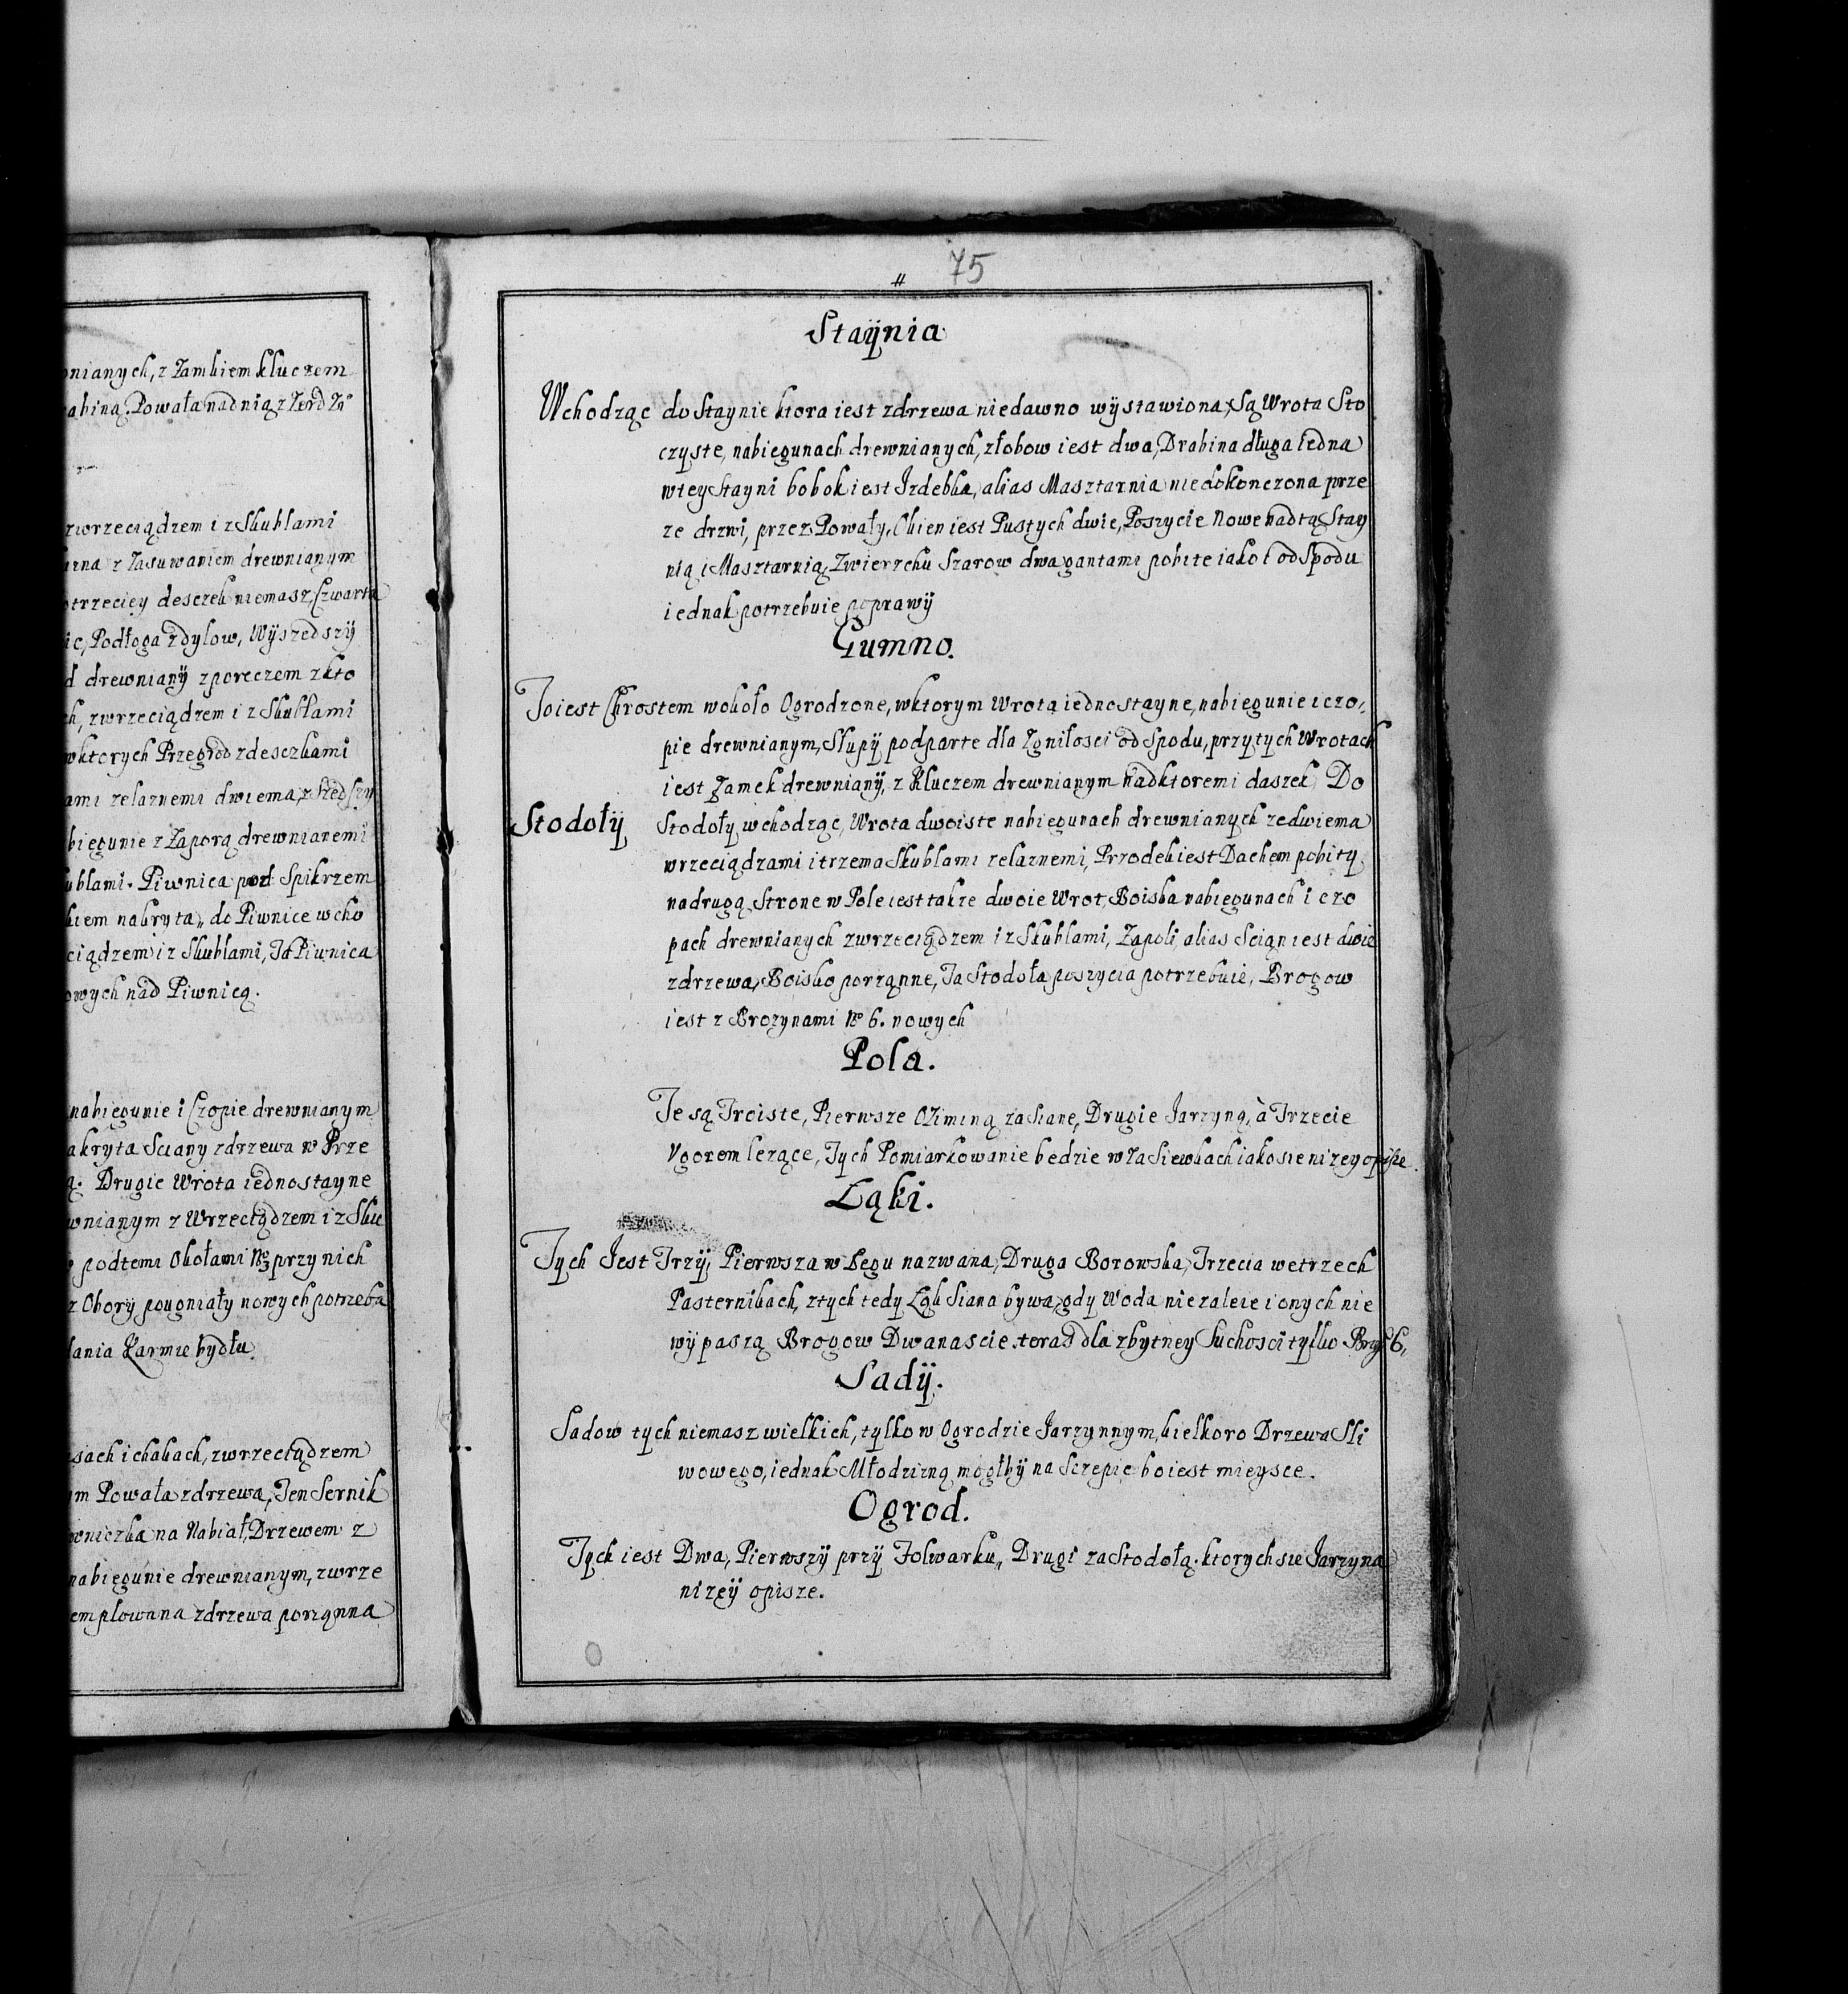 onianych, z Zamkiem kluczem
abiną. Powała nad nią z Zerdzi
zwrzeciądzem i z Skublami
z Zasuwaniem drewnianym
otrzeciey desczek niemasz, Czwarta
ic, Podłoga zdylow, Wyszedszÿ
d drewnianÿ zporeczem zkto
ch, zwrzeciądzem i z Skubłami
wktorych Przegrod zdesczkami
ami zelaznemi dwiema, zszedszy
biegunie z Zaporą drewnianemi
ublami. Piwnica pod Spikrzem
kiem nakryta,, do Piwnice wcho
ciądzem i z Skublami, Ta Piwnica
owych nad Piwnicą.
nabiegunie i Czopie drewnianym
akryta Sciany zdrzewa w Prze
ą. Drugie Wrota iednostayne
wnianym z Wrzeciądzem i z Sku
podtemi Okołami No 3 przy nich
z Obory pougniały nowych potrzeba
dania Karmie bydłu.
sach i chabach, zwrzeciądzem
m Powała zdrzewa, Ten Sernik
wniczka na Nabiał, Drzewem z
nabiegunie drewnianym, zwrze
emplowana zdrzewa porządnna
75
Staÿnia
Wchodząc do Staynie ktora iest zdrzewa niedawno wÿstawiona, Są Wrota Sto
czyste, nabiegunach drewnianych, złobow iest dwa, Drabina długa iedna
wtey Stayni bobok iest Izdebka, alias Masztarnia niedokonczona prze
ze drzwi, przez Powały, Okien iest Pustych dwie, Poszycie Nowe nad tą Stay
nią i Masztarnią, Zwierzchu Szarow dwa gantami pobite iako i od Spodu
iednak potrzebuie poprawÿ
Gumno.
To iest Chrostem wokoło Ogrodzone, wktorym Wrota iednostayne, nabiegunie i czo,,
pie drewnianym, Słupÿ podparte dla Zgniłosci od Spodu, przy tych Wrotach
iest Zamek drewnianÿ, z Kluczem drewnianym nadktoremi daszek, Do
Stodołÿ Stodołÿ wchodząc, Wrota dwoiste nabiegunach drewnianych zedwiema
wrzeciądzami i trzema Skublami zelaznemi, Przodek iest Dachem pobitÿ
nadrugą Strone w Pole iest takze dwoie Wrot, Boiska nabiegunach i czo
pach drewnianych zwrzeciądzem i z Skublami, Zapoli alias Sciąn iest dwie
zdrzewa, Boisko porządnne, Ta Stodoła poszycia potrzebuie, Brogow
iest z Brozynami No 6. nowych
Pola.
Te są Troiste, Pierwsze Oziminą zasiane, Drugie Jarzyną, à Trzecie
Vgorem lezące, Tych Pomiarkowanie bedzie w zasiewkach iako sie nizey opisze.
Łąki.
Tych Jest Trzÿ, Pierwsza w Łegu nazwana, Druga Borowska, Trzecia wetrzech
Pasternikach, ztych tedy Łąk Siana bywa, gdy Woda niezaleie i onych nie
wÿpaszą Brogow Dwanascie. teraz dla zbytney Suchosci tylko Brog: 6,
Sadÿ.
Sadow tych niemasz wielkich, tylko w Ogrodzie Jarzynnym, kielkoro Drzewa Sli
wowego, iednak Młodzizną mogłbÿ na Szczepic bo iest mieysce.
Ogrod.
Tych iest Dwa, Pierwszÿ przÿ Folwarku,, Drugi za Stodołą. ktorych sie Jarzyna
nizeÿ opisze.